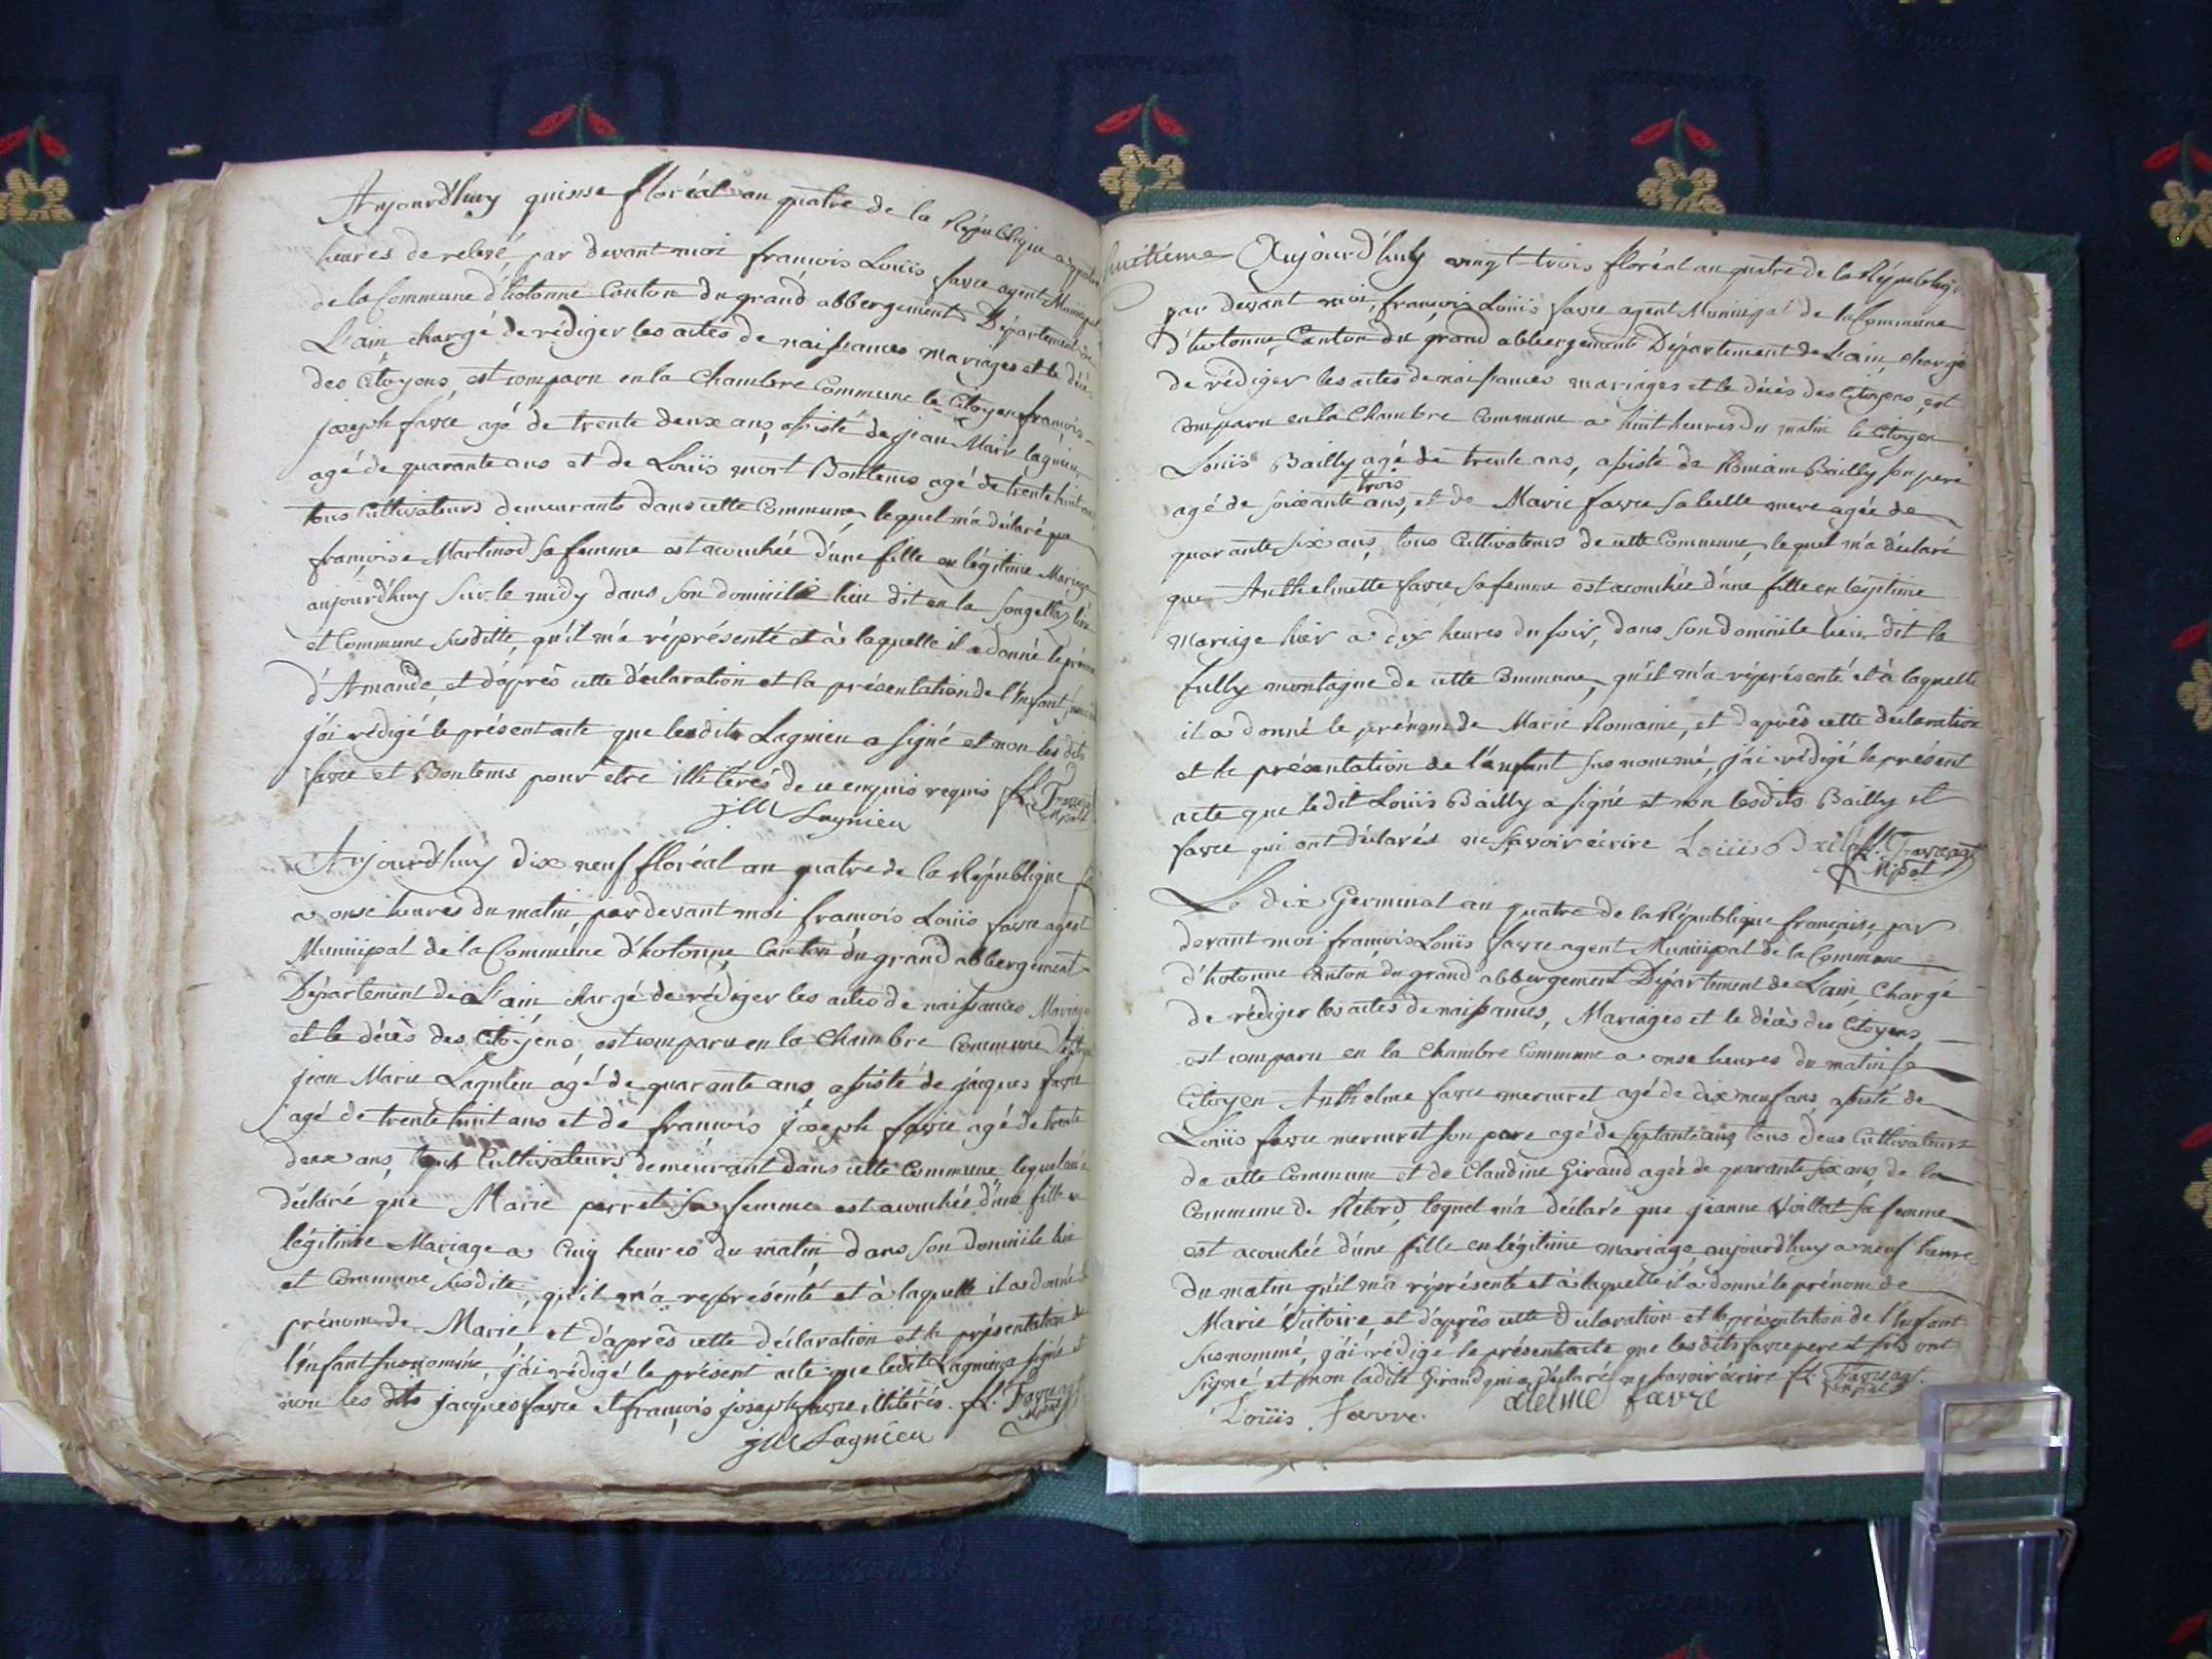 Aujourdhuy quinse floréal an quatre de la République a quatre
heures de relevé, par devant moi francois Louïs favre agent Municipal
de la Commune d'hotonne Conton du grand abbergement Département de
L'ain chargé de rédiger les actes de naissances mariages et le décès
des Citoyens, est comparu en la Chambre Commune le Citoyen françois
joseph favre agé de trente deux ans, assisté de jean Marie lagnieu
agé de quarante ans et de Louïs mort Bontems agé de trente huit ans
tous Cultivateurs demeurants dans cette Commune, lequel m'a déclaré que
françoise Martinod sa femme est acouchée d'une fille en légitime Mariage
aujourd'huy sur le midy dans son domicile lieu dit en la
et Commune susditte, qu'il m'a réprésenté et à laquelle il a donné le prénom
d'Amande, et d'après cette déclaration et la présentation de l'Enfant
j'ai rédigé le présent acte que ledit Lagnieu a signé et non les dits
favre et Bontems pour etre illitérés de ce enquis requis fL. Favre agt
jM Lagnieu Mpal
Aujourdhuy dix neuf floréal an quatre de la République
a onse heures du matin, par devant moi francois Louïs favre agent
Municipal de la Commune d'hotonne, Canton du grand abbergement
Département de L'ain, chargé de rédiger les actes de naissances Mariages
et le décès des Citoyens, est comparu en la Chambre Commune
jean Marie Lagnieu agé de quarante ans, assisté de jacques favre
agé de trente huit ans et de francois joseph favre agé de trente
deux ans, tous Cultivateurs demeurant dans cette Commune, lequel m'a
déclaré que Marie perret sa femme est acouchée d'une fille en
légitime Mariage a Cinq heures du matin, dans son domicile lieu
et Commune susdite, qu'il m'a représenté et à laquelle il a donné le
prénom de Marie, et d'après cette déclaration et la présentation de
l'Enfant susnommé, j'ai rédigé le présent acte que ledit Lagnieu a signé et
non les dits jacques favre et françois joseph favre illitérés. fL. Favre agt
jM Lagnieu Mpal
huitième Aujourd'huy vingt-trois floréal an quatre de la République
par devant moi, françois Louïs favre agent Municipal de la Commune
d'hotonne, Canton du grand abbergement Département de L'ain, chargé
de rédiger les actes de naissances mariages et le décès des Citoyens, est
comparu en la Chambre Commune a huit heures du matin le Citoyen
Louïs Bailly agé de trente ans, assisté de Romain Bailly son pere
agé de soixante trois ans, et de Marie favre sa belle mere agée de
quarante six ans, tous Cultivateurs de cette Commune, lequel m'a déclaré
que Anthelmette favre sa femme est acouchée d'une fille en légitime
mariage hier a dix heures du soir, dans son domicile lieu dit la
fully montagne de cette Commune, qu'il m'a réprésenté et à laquelle
il a donné le prénom de Marie Romaine, et d'après cette déclaration
et la présentation de l'enfant sus nommé, j'ai rédigé le présent
acte que ledit Louïs Bailly a signé et non lesdits Bailly et
favre qui ont déclarés ne savoir écrire Loüis Bailly fL. Favre agt
Mpal
Le dix Germinal an quatre de la République française, par
devant moi francois Louïs favre agent Municipal de la Commune
d'hotonne Canton du grand abbergement Département de L'ain, Chargé
de rédiger les actes de naissances, Mariages et le décès des Citoyens,
est comparu en la Chambre Commune a onse heures du matin le
Citoyen Anthelme favre mercuret agé de dix neuf ans, assisté de
Louïs favre mercuret son pere agé de septante ans, tous deux Cultivateurs
de cette Commune et de Claudine Girand agée de quarante six ans, de la
Commune de Rétord, lequel m'a déclaré que jeanne Voillat sa femme
est acouchée d'une fille en légitime mariage, aujourd'huy a neuf heures
du matin qu'il m'a réprésenté et à laquelle il a donné le prénom de
Marie Victoire, et d'après cette déclaration et la présentation de l'Enfant
sus nommé, j'ai rédigé le présent acte que les dits favre pere et fils ont
signé et non ladite Girand qui a déclaré ne savoir écrire fL. Favre agt.
Mpal
Loüis Favre. aleime favre